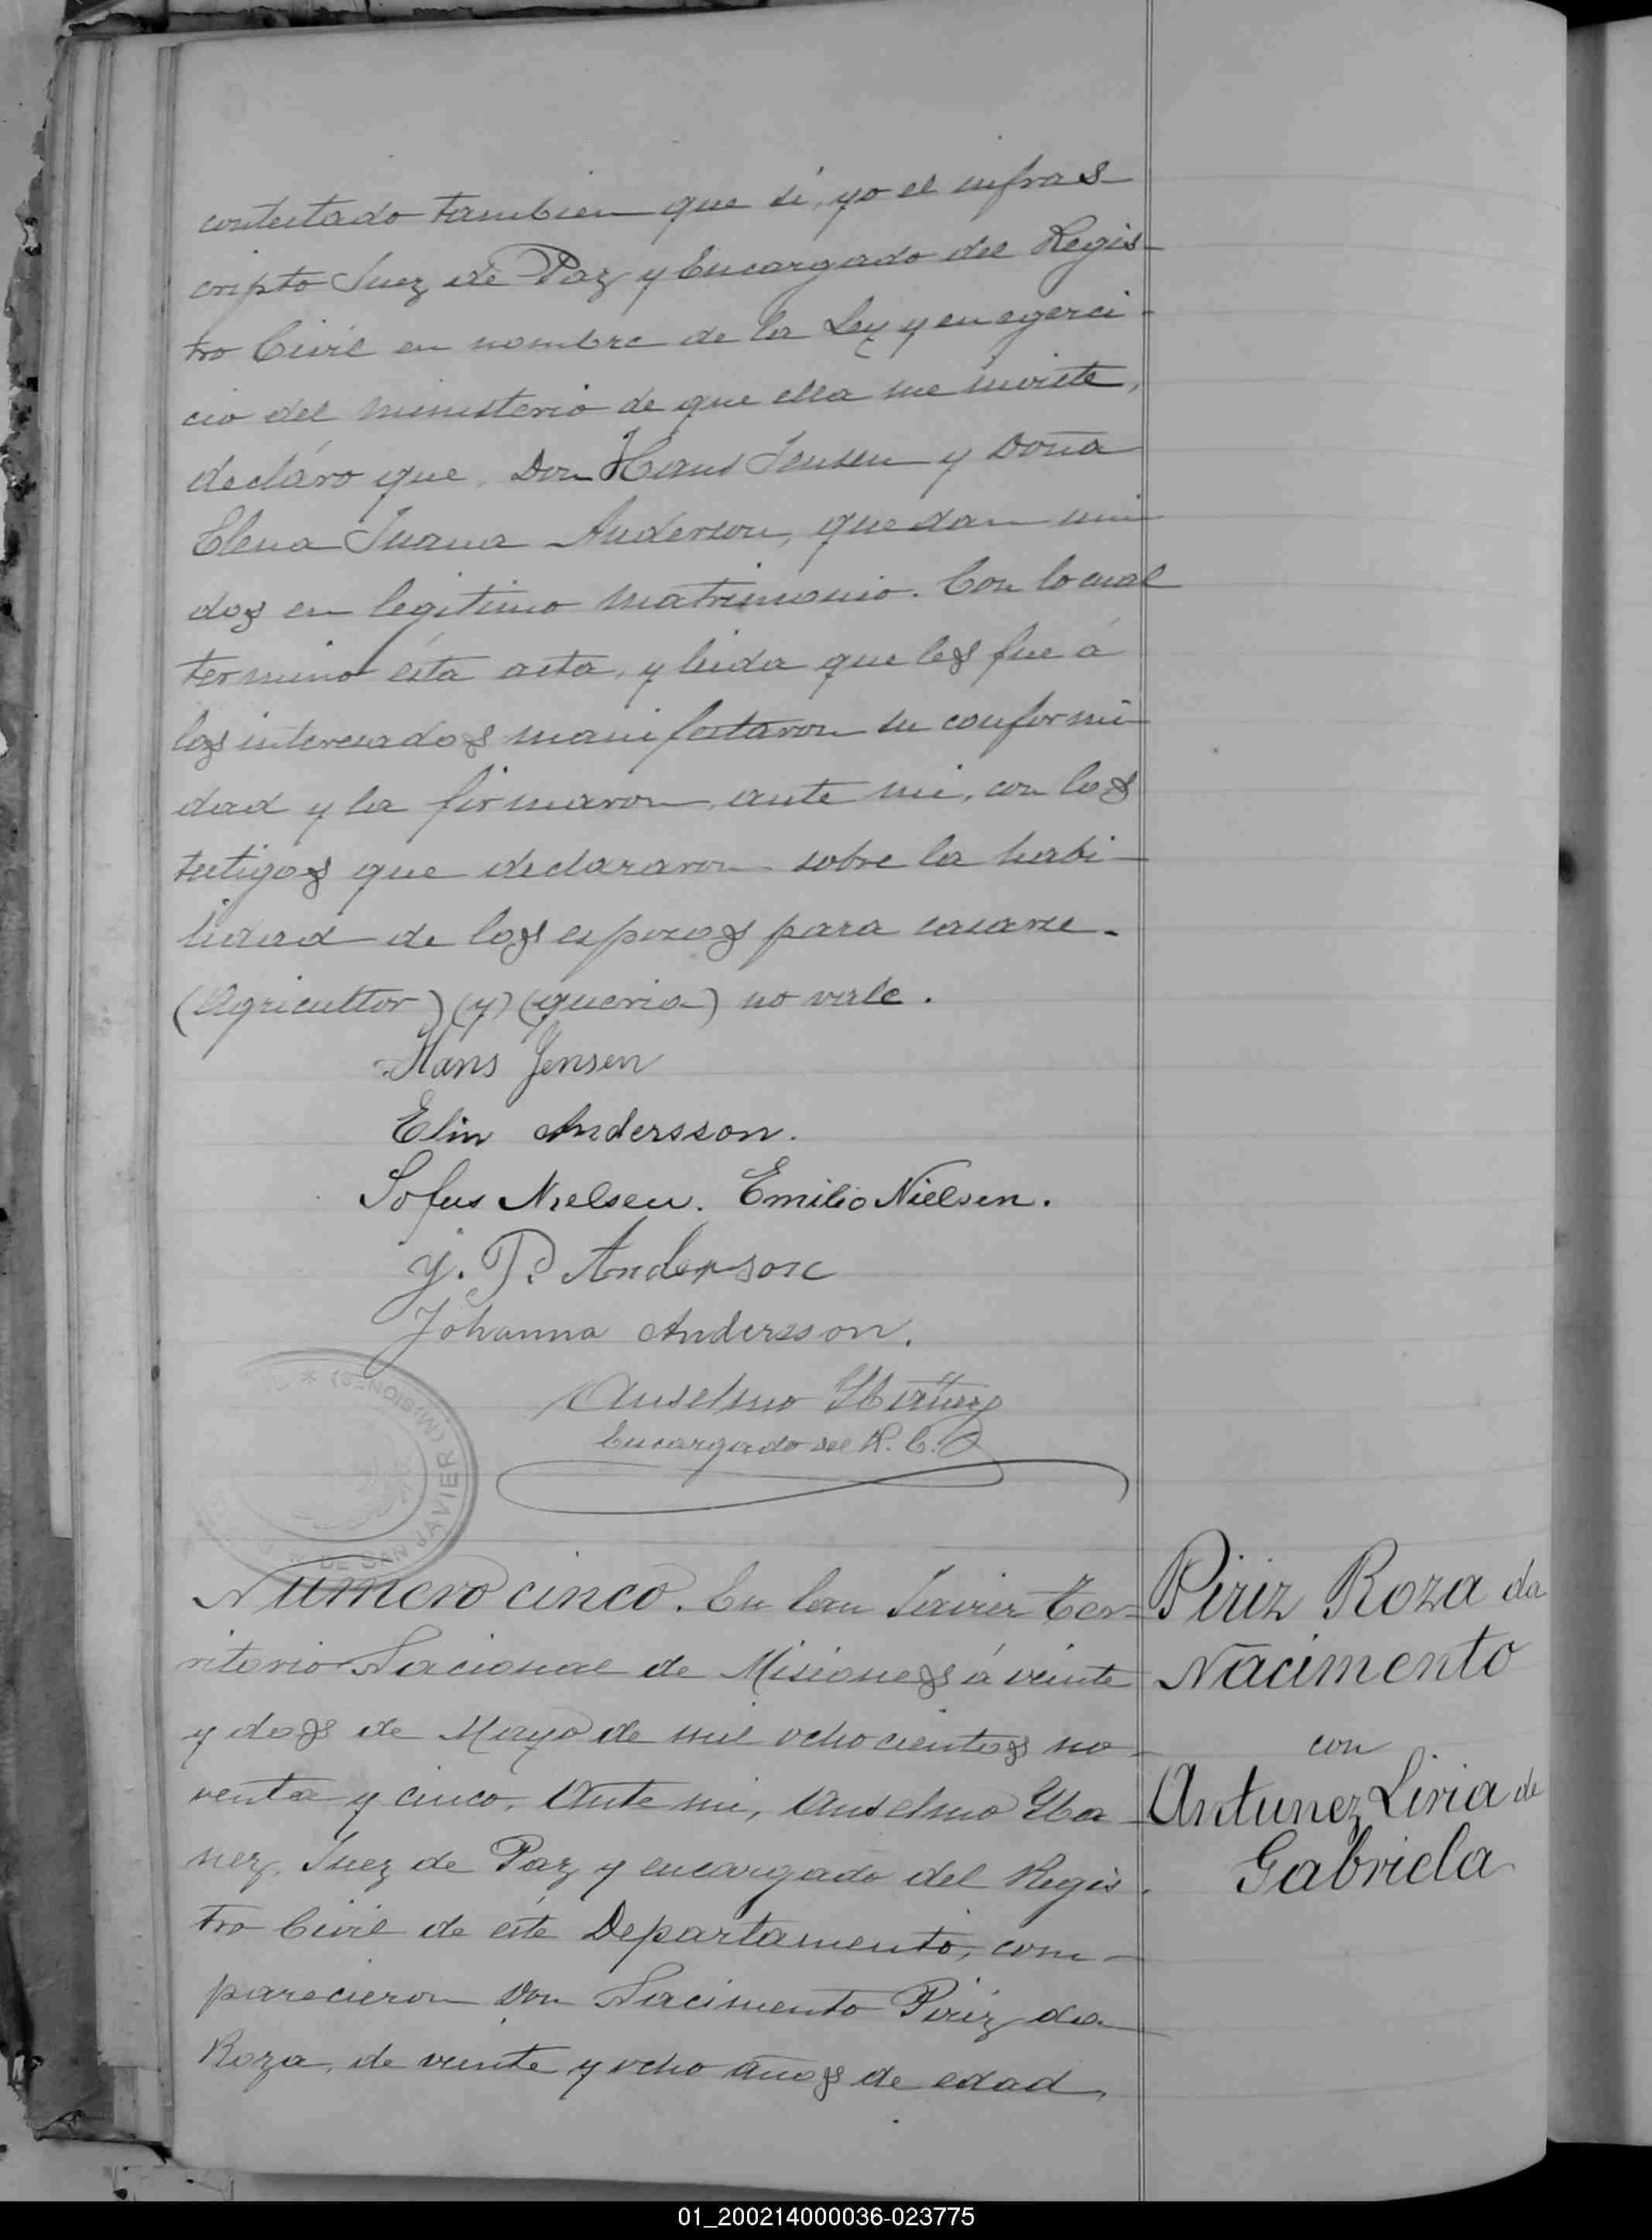 contestado tambien que si, yo el infras
cripto Juez de Paz y Encargado del Regis-
tro Civil en nombre de la Ley y en egerci-
cio del ministerio de que ella me inviste,
decláro que, Don Hans Jensen y Doña
Elena Juana Anderson, quedan uni
dos en legitimo matrimonio. Con lo cual
terminó ésta acta, y leida que les fue á
los interesados manifestaron su conformi-
dad y la firmaron, ante mi, con los
testigos que declararon sobre la habi-
lidad de los esposos para casarse.-
(Agricultor) (y) (queria) no vale.
Hans Jensen
Elin Andersson.
Sofus Nielsen. Emilio Nielsen.
J. P. Anderson
Johanna Andersson.
Anselmo Ibañez
Encargado del R. C.
(MISIONES) *
DE SAN JAVIER
Numero cinco. En San Javier Ter-
ritorio Nacional de Misiones á veinte
y dos de Mayo de mil ochocientos no-
venta y cinco. Ante mi, Anselmo Iba-
nez, Juez de Paz y encargado del Regis-
tro Civil de éste Departamento, com-
parecieron Don Nacimento Piriz da
Roza, de veinte y ocho años de edad,
Piriz Roza da
Nacimento
con
Antunez Liria de
Gabriela
01_200214000036-023775